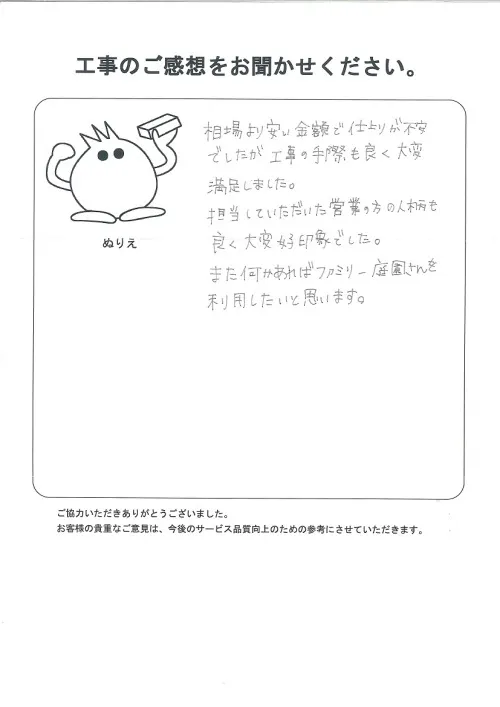 工事のご感想をお聞かせください。
相場より安い金額で仕上りが不安
でしたが工事の手際も良く大変
満足しました。
担当していただいた営業の方の人柄も
良く大変好印象でした。
また何かあればファミリー庭園さんを
利用したいと思います。
ぬりえ
ご協力いただきありがとうございました。
お客様の貴重なご意見は、今後のサービス品質向上のための参考にさせていただきます。